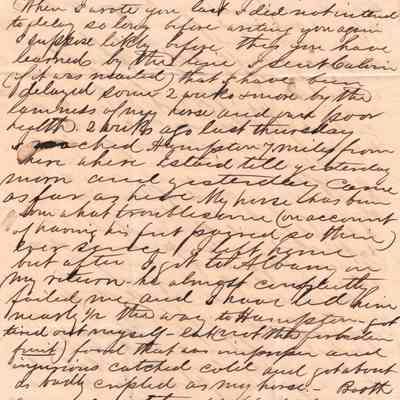 When I wrote you last I did not intend
to delay so long before writing you again
I suppose likely before this you have
learned by the line I sent Calvin
(if it was mailed) that I have been
delayed some 2 weeks & more by the
lameness of my horse and own poor
health. 2 weeks ago last thursday
I reached Hampton 7 miles from
here where I staid till yesterday
morn and yesterday came
as far as here My horse has been
some what troublesome (on account
of having his feet so thin)
ever since I left home
but after I got to Albany on
my return he almost completely
failed me and I have led him
nearly the way to Hampton got
tired out myself - the forbiden
fruit) food that was improper and
injurious catched cold and got about
as badly cripled as my horse - Booth